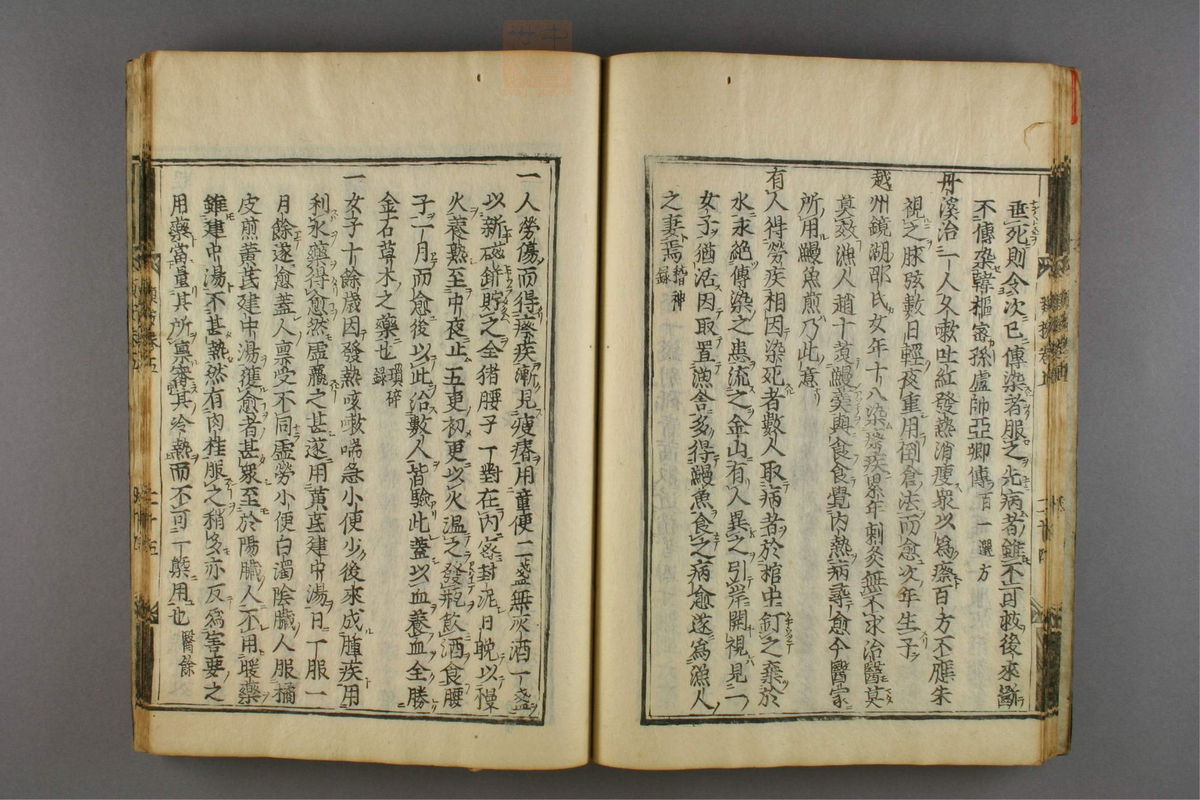 垂死則令次已傳染者服之先病者雖不可救後來斷
不傳染韓樞密孫盧帥亞卿傳 百一選方
丹溪治一人久嗽吐紅發熱消瘦衆以爲瘵百方不應朱
視之脉弦數日輕夜重用倒倉法而愈次年生子
越州鏡湖邵氏女年十八染瘵疾累年刺灸無不求治醫莫
莫效漁人趙十煑鰻羹與食食覺内熱病尋愈今醫家
所用鰻魚煎乃此意
有人得勞疾相因染死者數人取病者於棺中釘之棄於
水永絕傳染之患流之金山有人異之引岸開視見一
女子猶活因取置漁舍多得鰻魚食之病愈遂爲漁人
之妻焉 稽神録
一人勞傷而得瘵疾漸見瘦瘠用童便二盞無灰酒一盞
以新磁缾貯之全猪腰子一對在内密封泥日晚以慢
火養熟至中夜止五更初更以火温之發瓶飲酒食腰
子一月而愈後以此治數人皆驗此蓋以血養血全勝
金石草木之藥也 瑣碎録
一女子十餘歳因發熱咳嗽喘急小便少後來成腫疾用
利水藥得愈然虚羸之甚遂用黄芪建中湯日一服一
月餘遂愈蓋人禀受不同虚勞小便白濁陰臟人服橘
皮煎黄芪建中湯獲愈者甚衆至於陽臟人不用暖藥
雖建中湯不甚熱然有肉桂服之稍多亦反爲害要之
用藥當量其所禀審其冷熱而不可一槩用也 醫餘